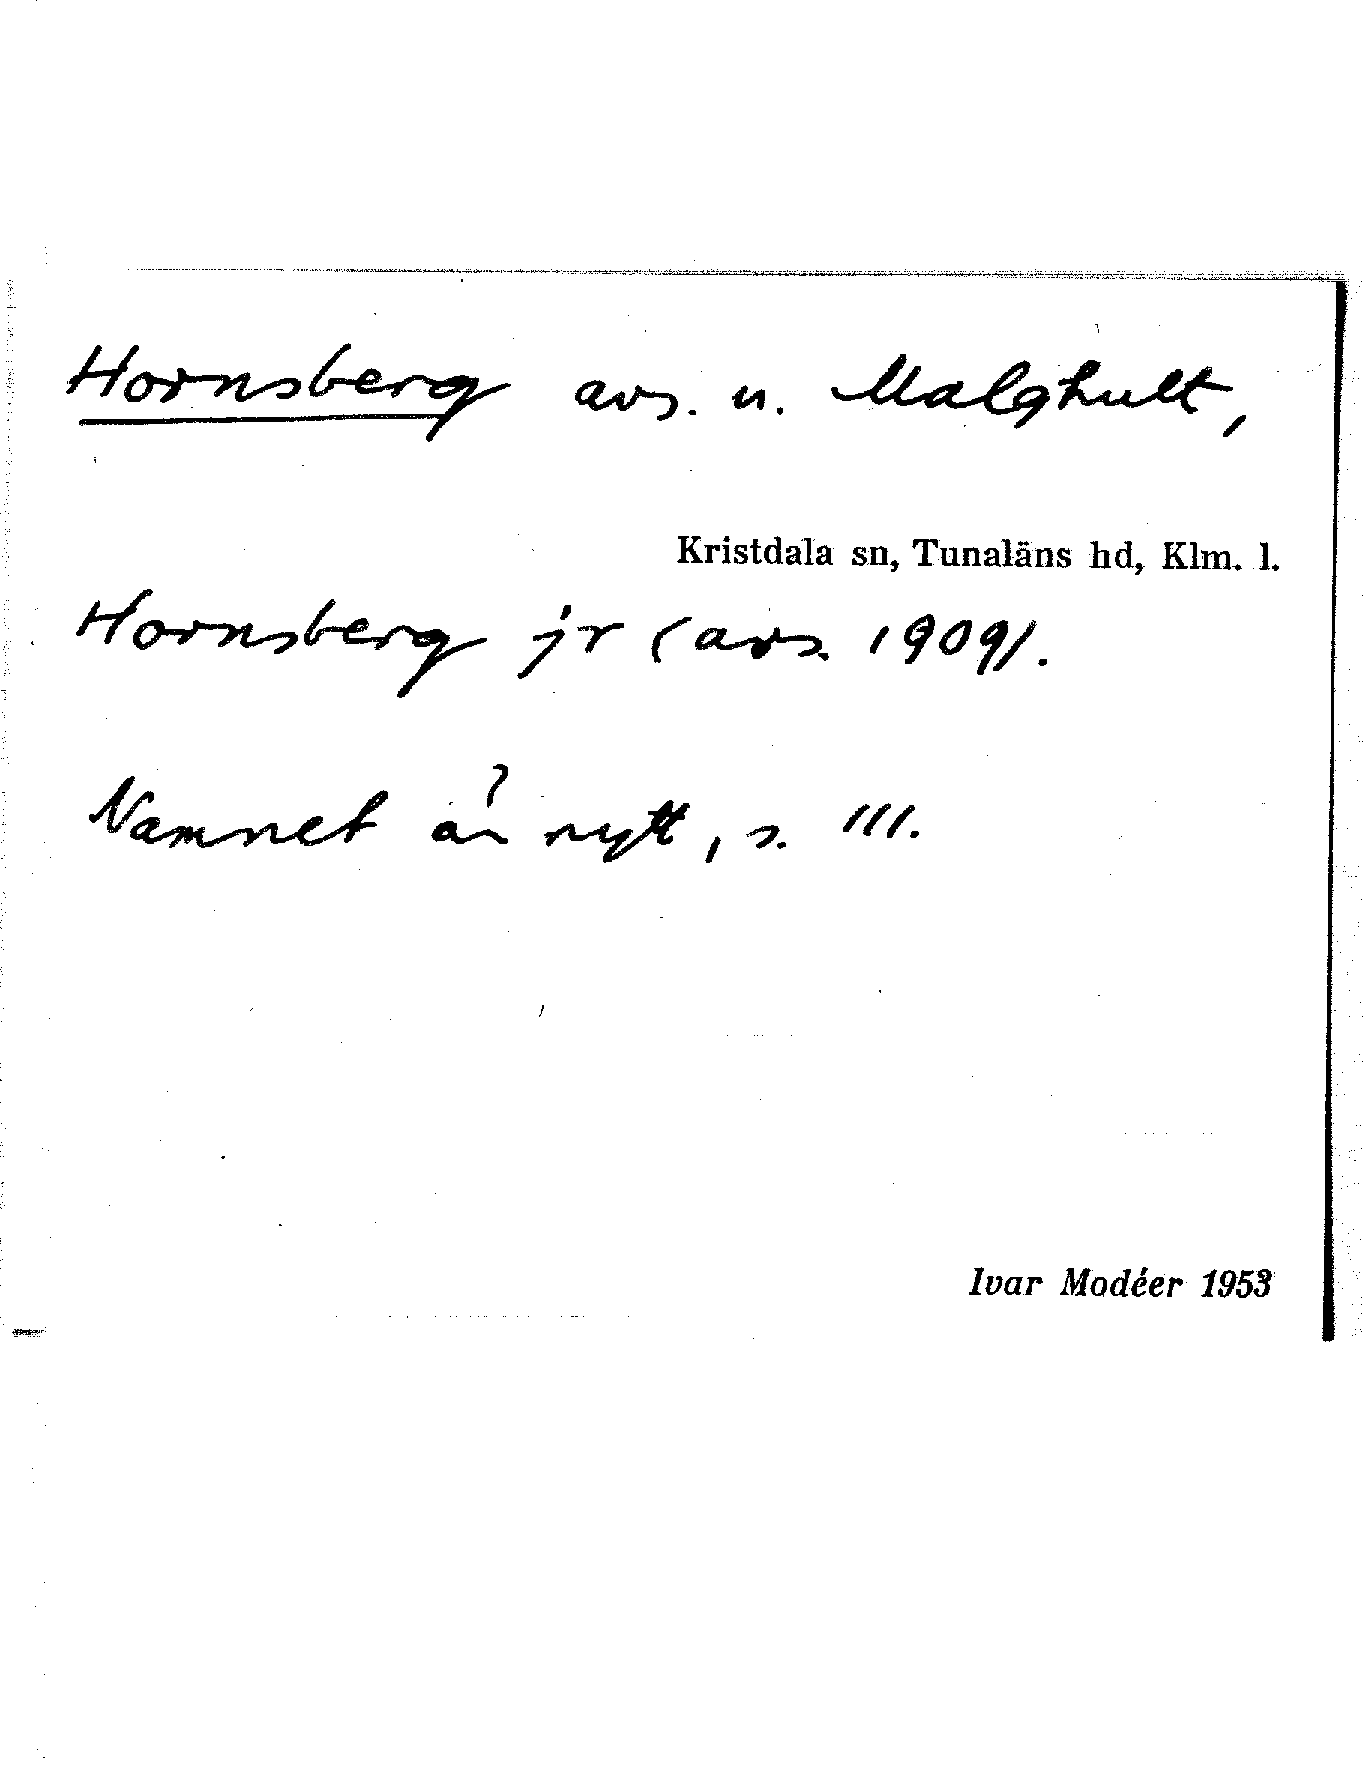 Hornsberg avs. u. Malghult,
Kristdala sn, Tunaläns hd, Klm. l.
Hornsberg jr (avs. 1909).
Namnet är nytt, s. 111.
Ivar Modéer 1953